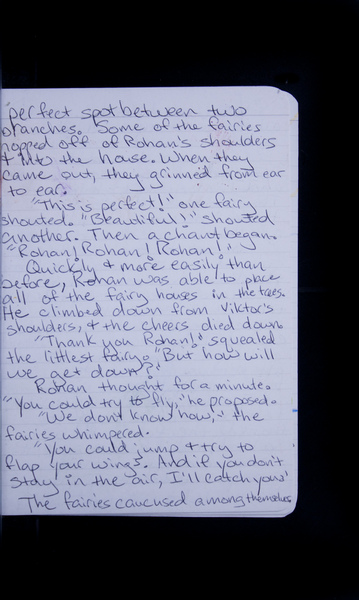 perfect spot between two
branches. Some of the fairies
hopped off of Rohan's shoulders
+ into the house. When they
came out, they grinned from ear
to ear.
"This is perfect!" one fairy
shouted. "Beautiful!" shouted
another. Then a chant began.
"Rohan! Rohan! Rohan!"
Quickly + more easily than
before, Rohan was able to place
all of the fairy houses in the trees.
He climbed down from Viktor's
shoulders, + the cheers died down.
"Thank you Rohan!" squealed
the littlest fairy. "But how will
we get down?"
Rohan thought for a minute.
"You could try to fly," he proposed.
"We don't know how," the
fairies whimpered.
"You could jump + try to
flap your wings. And if you don't
stay in the air, I'll catch you."
The fairies caucused among themselves